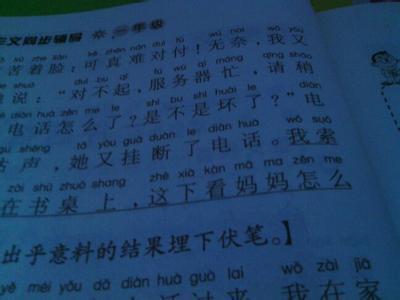 文同步辅导 ※ 一年级
zhe liǎn kě zhēn nán duì fu wú nài wǒ yòu
苦着脸：可真难对付！无奈，我又
duì bu qǐ fú wù qì máng qǐng shāo
说："对不起，服务器忙，请稍
diàn huà zěn me le shì bu shì huài le diàn
电话怎么了？是不是坏了？"电
shēng tā yòu guà duàn le diàn huà wǒ suǒ
声，她又挂断了电话。我索
zài shū zhuō shang zhè xià kàn mā ma zěn me
在书桌上，这下看妈妈怎么
出乎意料的结果埋下伏笔。】
yě méi yǒu dǎ diàn huà guò lai wǒ zài jiā
我在家